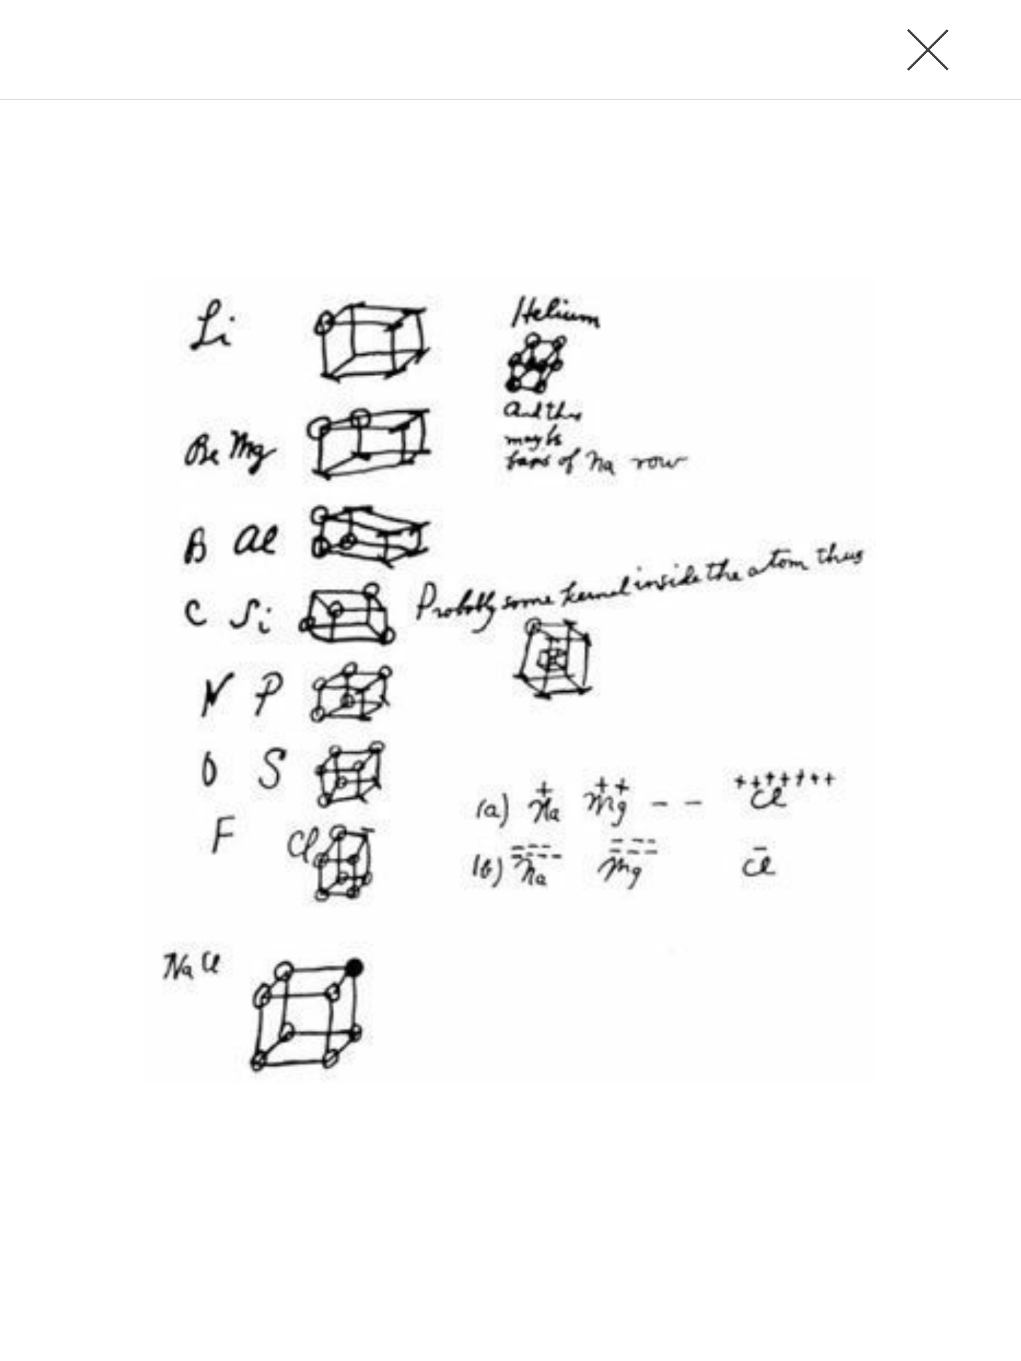 Li
Helium
And this
may be
basis of Na row
Be Mg
B Al
C Si
Probably some kernel inside the atom thus
N P
O S
F Cl
(a) + Na ++ Mg - - +++++++ Cl
(b) ------- Na ------ Mg - Cl
Na Cl